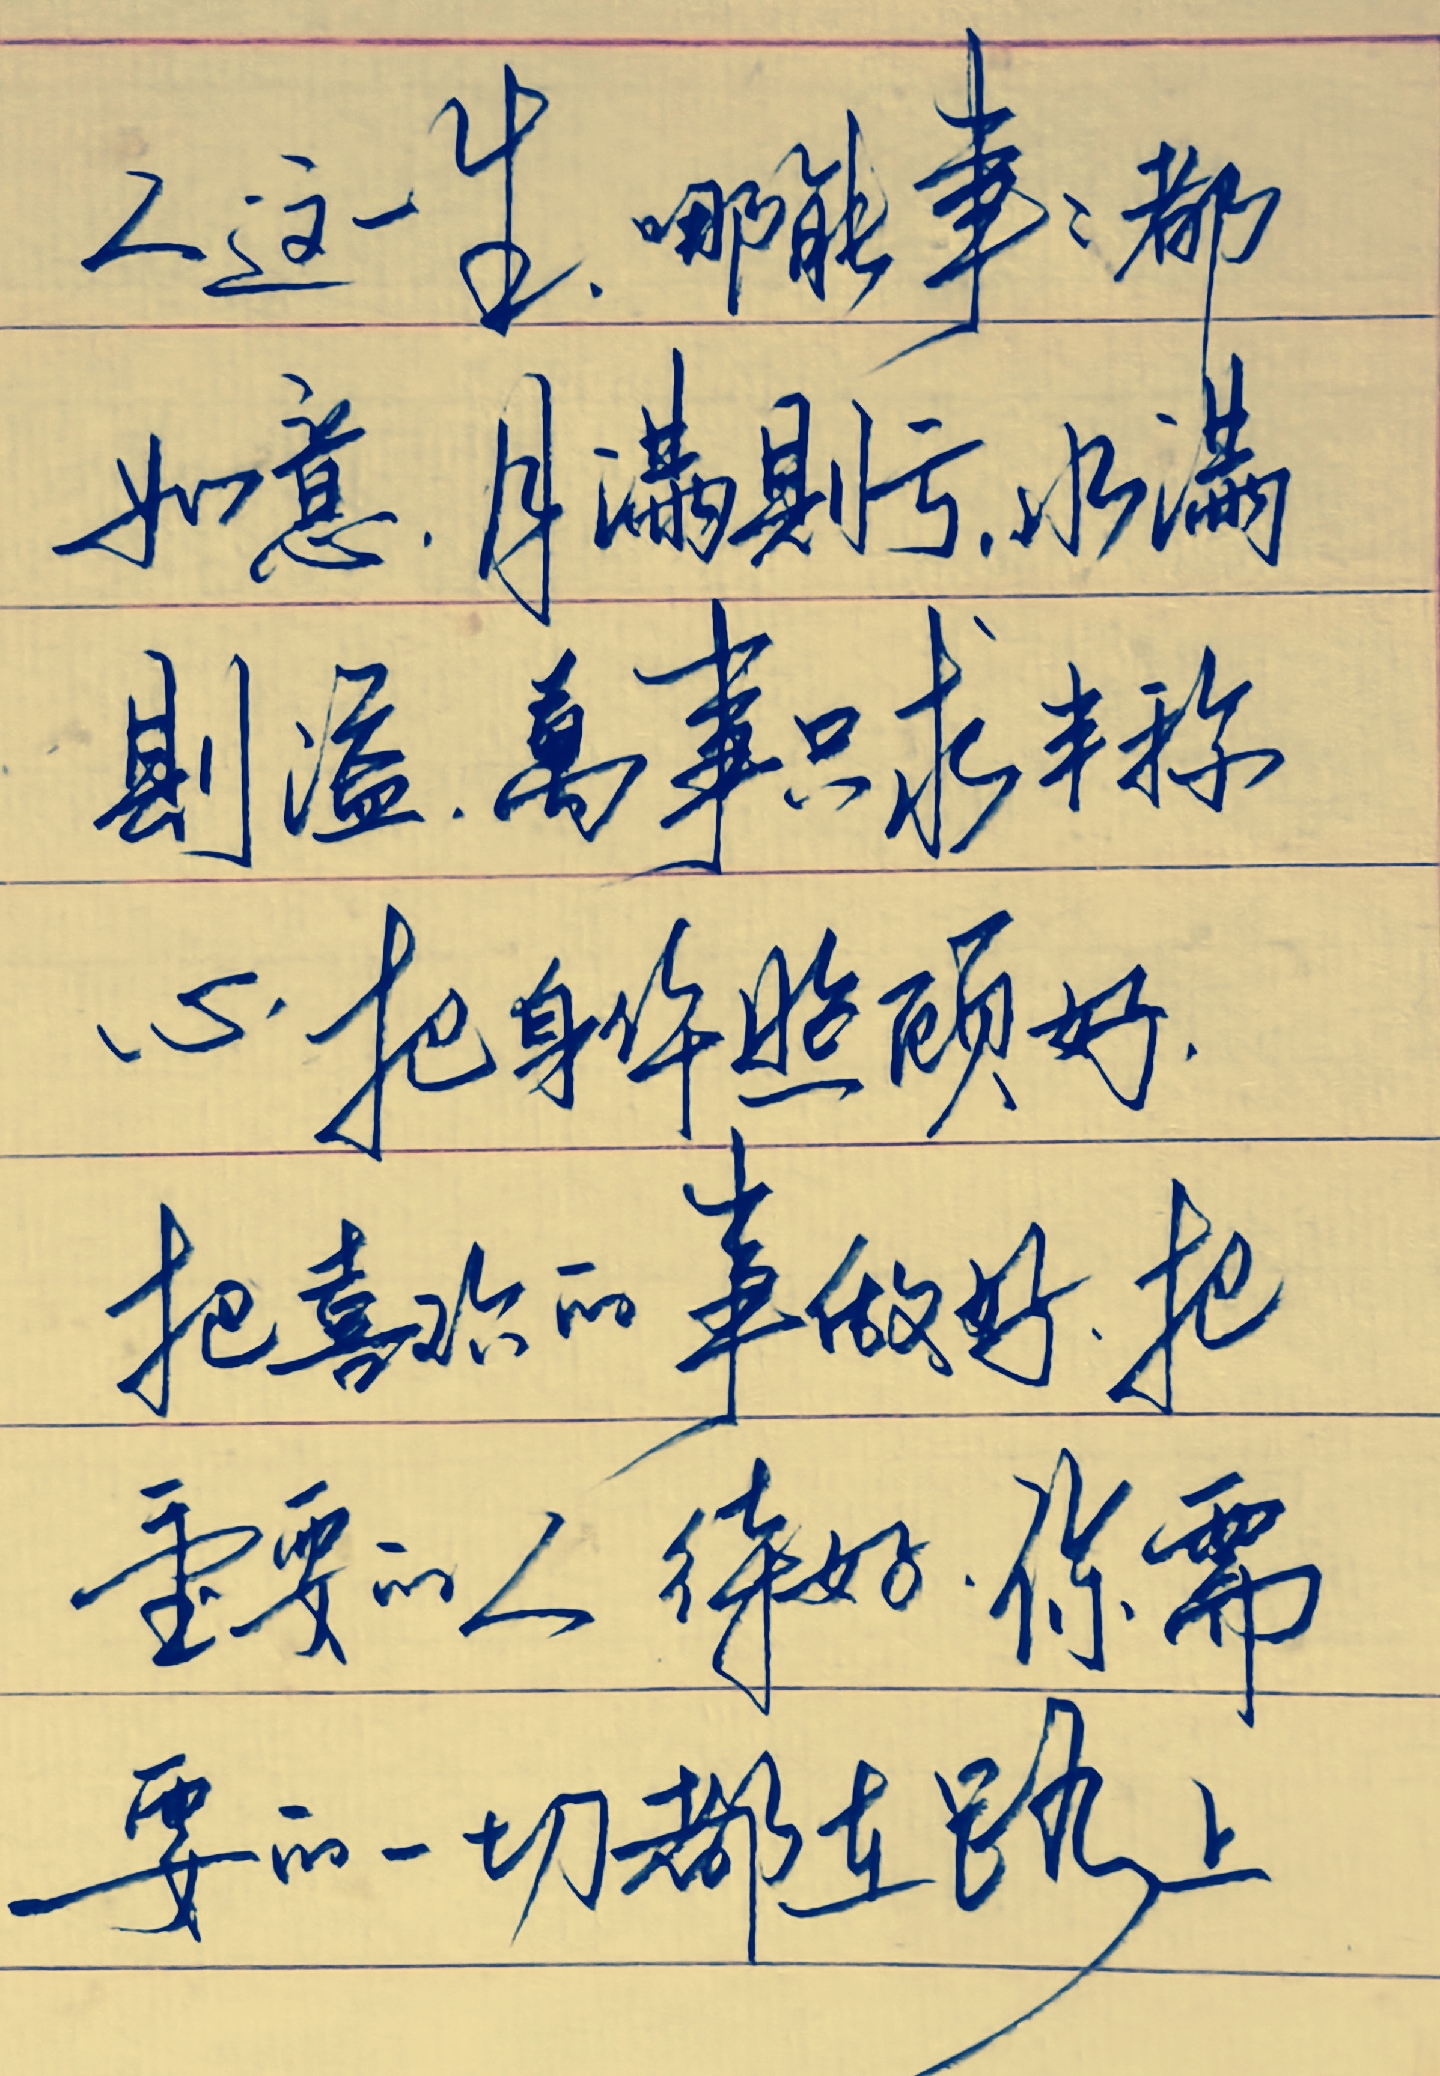 人这一生，哪能事事都
如意，月满则亏，水满
则溢，萬事只求半称
心，把身体照顾好，
把喜欢的事做好，把
重要的人待好，你需
要的一切都在路上